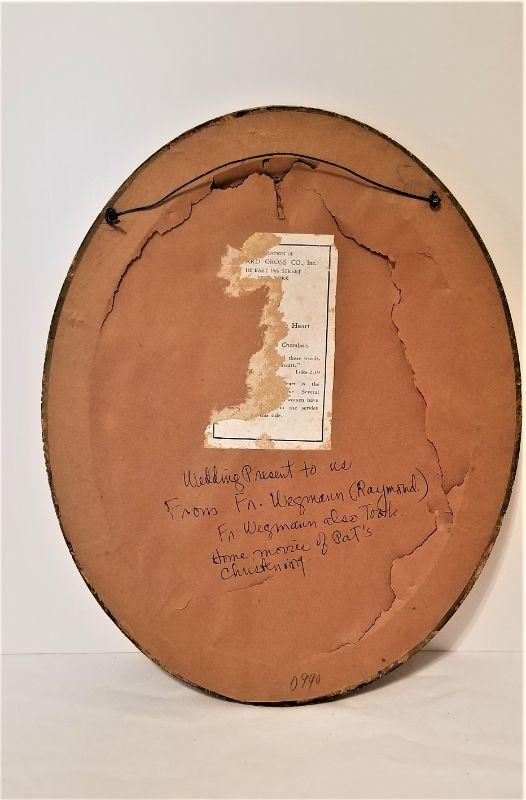 ARD GROSS CO., Inc.
EAST 19th STREET
Heart
Chambers
these words,
heart."
Luke 2:19
is the
Several
women have
in the service
this title.
Wedding Present to us
From Fr. Wegmann (Raymond.)
Fr. Wegmann also Took
Home movies of Pat's
Christening
0990